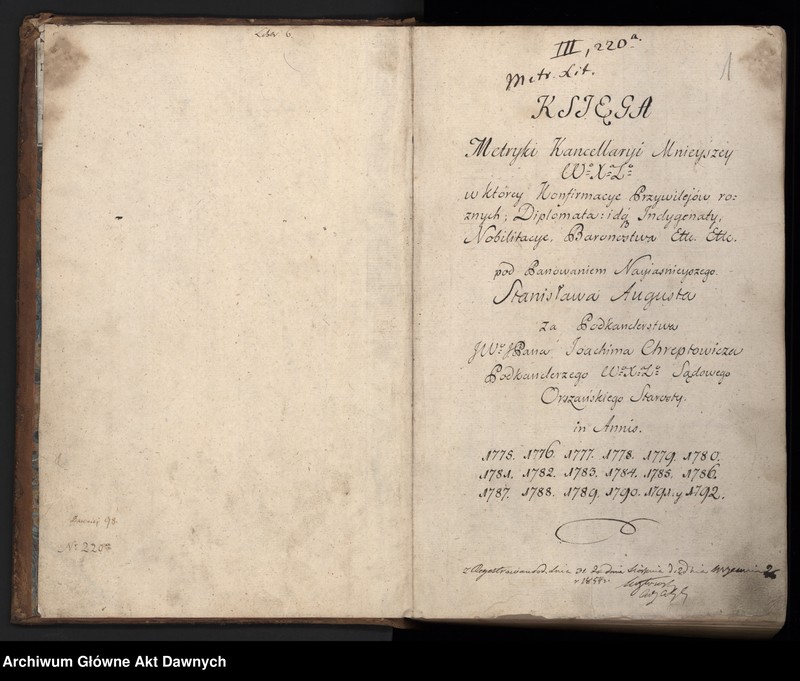 Liber 6.
Dawniej 93.
No 220a
III, 220a.
1
Metr. Lit.
KSIĘGA
Metryki Kancellaryi Mnieyszey
Wo Xa Lo
w którey Konfirmacye Przywilejów ro:
znych, Diplomata: idą Indygenaty,
Nobilitacye, Baronostwa Etc. Etc.
pod Panowaniem Nayiaśnieyszego
Stanisława Augusta
za Podkanclerstwa
JWo JPana Joachima Chreptowicza
Podkanclerzego Wo Xa Lo Sądowego
Orszańskiego Starosty.
in Annis.
1775. 1776. 1777. 1778. 1779. 1780.
1781. 1782. 1783. 1784. 1785. 1786.
1787. 1788. 1789. 1790. 1791. y 1792.
dnia 31
Archiwum Główne Akt Dawnych